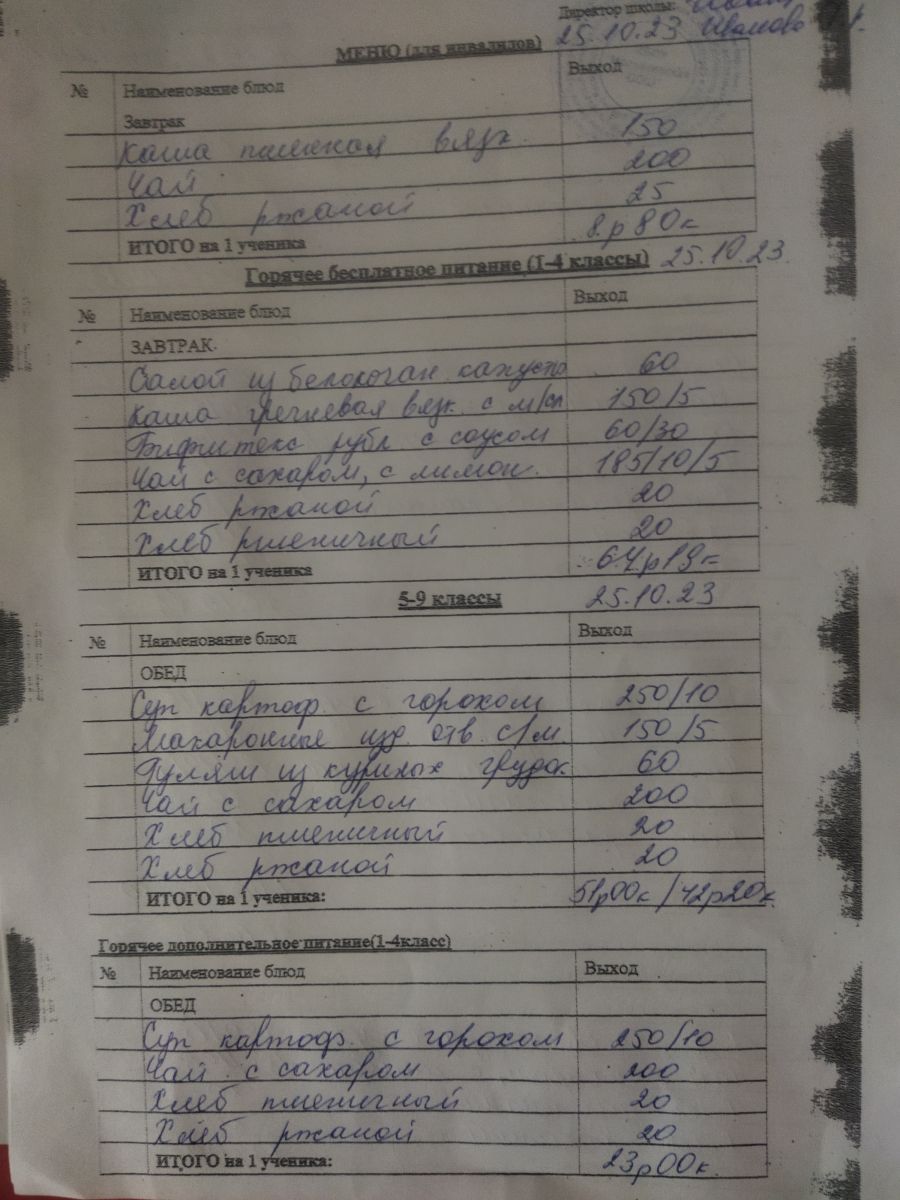 Директор школы:
МЕНЮ (для инвалидов) 25.10.23 Иванова
№ Наименование блюд Выход
Завтрак
Каша пшенная вязк. 150
Чай 200
Хлеб ржаной 25
ИТОГО на 1 ученика 8р80к
Горячее бесплатное питание (1-4 классы) 25.10.23.
№ Наименование блюд Выход
ЗАВТРАК.
Салат из белокочан. капусты 60
Каша гречневая вязк. с м/сл 150/5
Бифштекс рубл с соусом 60/30
Чай с сахаром, с лимон. 185/10/5
Хлеб ржаной 20
Хлеб пшеничный 20
ИТОГО на 1 ученика 64р19к
5-9 классы 25.10.23
№ Наименование блюд Выход
ОБЕД
Суп картоф. с горохом 250/10
Макаронные изд. отв. с/м. 150/5
Гуляш из куриных грудок. 60
Чай с сахаром 200
Хлеб пшеничный 20
Хлеб ржаной 20
ИТОГО на 1 ученика: 51р00к/42р20к.
Горячее дополнительное питание(1-4класс)
№ Наименование блюд Выход
ОБЕД
Суп картоф. с горохом 250/10
Чай с сахаром 200
Хлеб пшеничный 20
Хлеб ржаной 20
ИТОГО на 1 ученика: 23р00к.